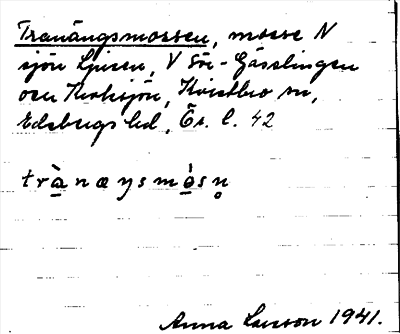 Tranängsmossen, mosse N
sjön Ljusen, V Sör-Gässlingen
och Kroksjön, Kvistbro sn,
Edsbergs hd, Ör. l. 42
trànæŋsmòsn̥
Anna Larson 1941.